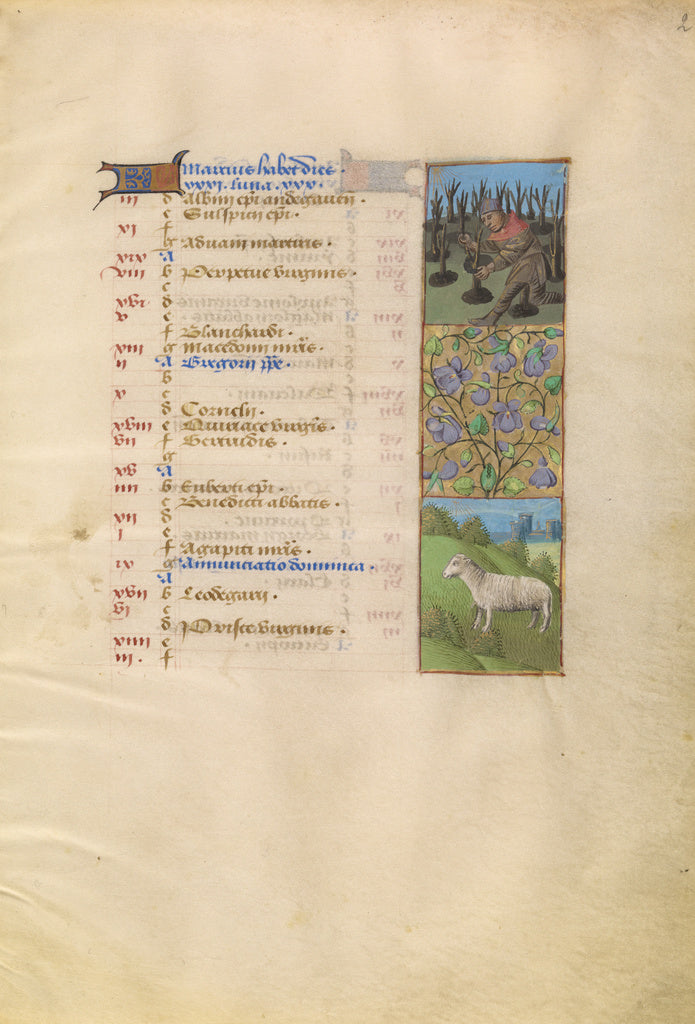 2
Marcius habet dies
xxxi. luna. xxx.
iii d Albini epi andegaven
c Sulpitii epi.
xi f
g Adriani martiris.
xix A
viii b Perpetue virginis.
c
xvi d
v e
f Blanchardi.
xiii g Macedonii mris.
ii A Gregorii ppe.
b
x c
d Cornelii.
xviii e Quiriace virgis.
vii f Gertrudis.
g
xv A
iiii b Euberti epi.
c Benedicti abbatis.
xii d
i e
f Agapiti mris.
ix g Annunciatio dominica.
A
xvii b Leodegarii.
vi c
d Prisce virginis.
xiiii e
iii. f